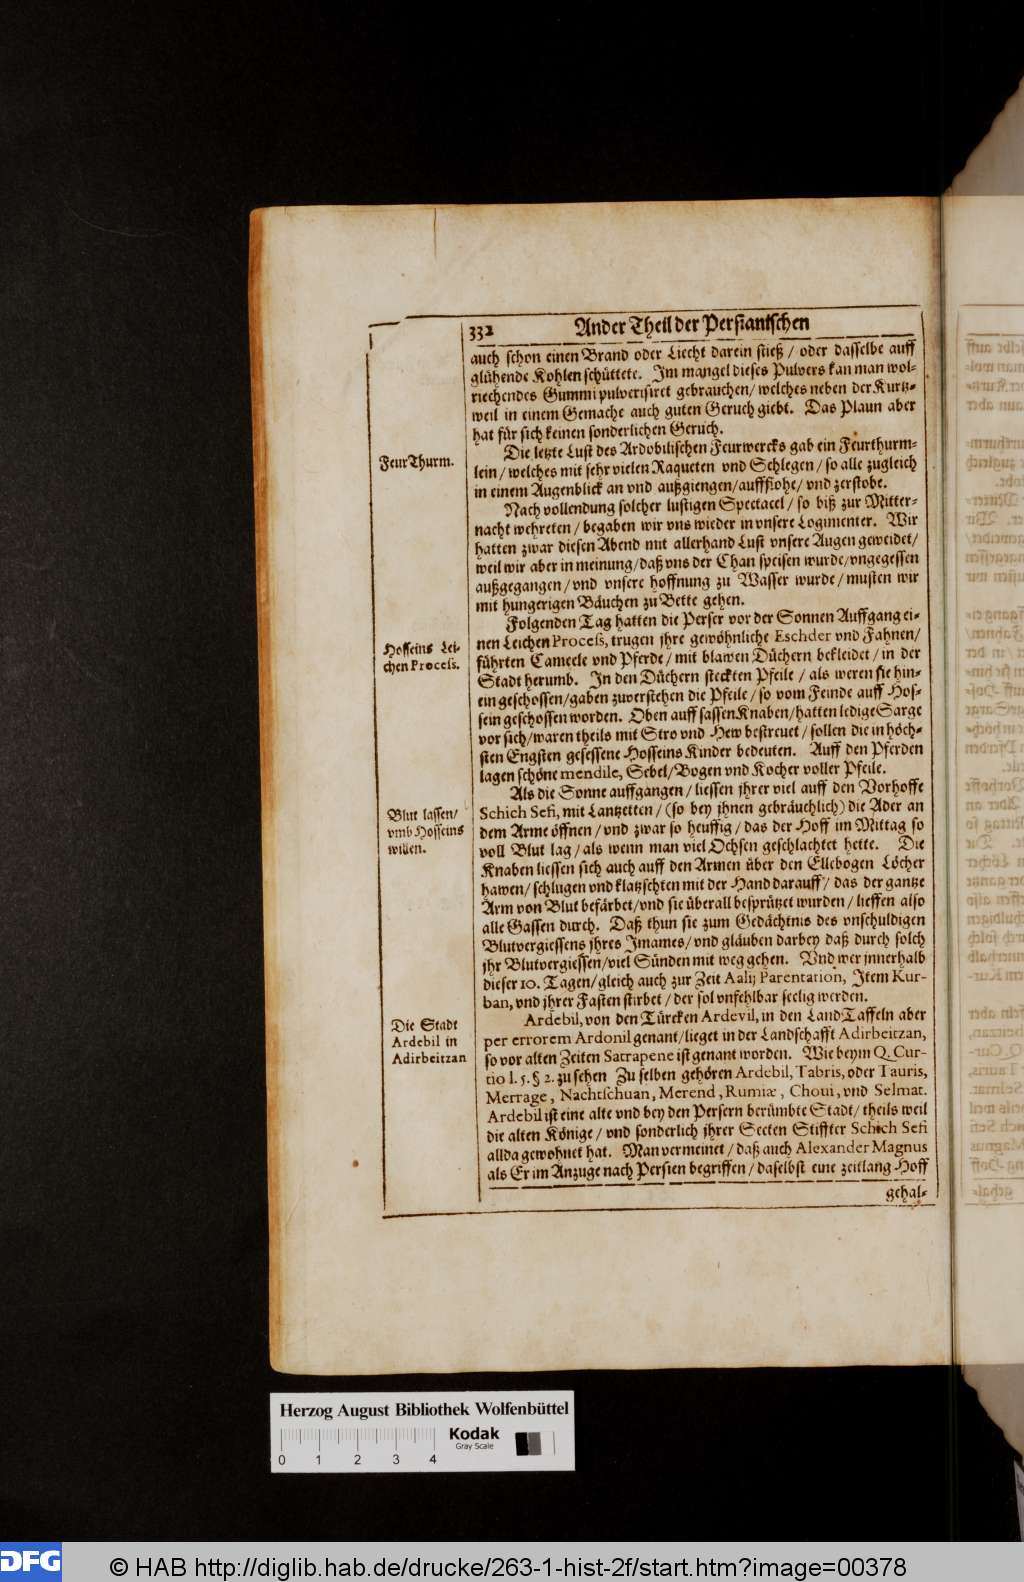 332 Ander Theil der Persianischen
auch schon einen Brand oder Liecht darein stieß / oder dasselbe auff
glühende Kohlen schüttete. Im mangel dieses Pulvers kan man wol-
riechendes Gummi pulverisiret gebrauchen / welches neben der Kurtz-
weil in einem Gemache auch guten Geruch giebt. Das Plaun aber
hat für sich keinen sonderlichen Geruch.
FeurThurm.
Die letzte Lust des Ardobilischen Feurwercks gab ein Feurthurm-
lein / welches mit sehr vielen Raqueten vnd Schlegen / so alle zugleich
in einem Augenblick an vnd außgiengen / auffflohe / vnd zerstobe.
Nach vollendung solcher lustigen Spectacel / so biß zur Mitter-
nacht wehreten / begaben wir vns wieder in vnsere Logimenter. Wir
hatten zwar diesen Abend mit allerhand Lust vnsere Augen geweidet /
weil wir aber in meinung / daß vns der Chan speisen wurde / vngegessen
außgegangen / vnd vnsere hoffnung zu Wasser wurde / musten wir
mit hungerigen Bäuchen zu Bette gehen.
Hosseins Lei-
chen Process.
Folgenden Tag hatten die Perser vor der Sonnen Auffgang ei-
nen Leichen Process, trugen jhre gewöhnliche Eschder vnd Fahnen /
führten Cameele vnd Pferde / mit blawen Düchern bekleidet / in der
Stadt herumb. In den Düchern steckten Pfeile / als weren sie hin-
ein geschossen / gaben zuverstehen die Pfeile / so vom Feinde auff Hos-
sein geschossen worden. Oben auff sassen Knaben / hatten ledige Sarge
vor sich / waren theils mit Stro vnd Hew bestreuet / sollen die in höch-
sten Engsten gesessene Hosseins Kinder bedeuten. Auff den Pferden
lagen schöne mendile, Sebel / Bogen vnd Kocher voller Pfeile.
Blut lassen /
vmb Hosseins
willen.
Als die Sonne auffgangen / liessen jhrer viel auff den Vorhoffe
Schich Sefi, mit Lantzetten / (so bey jhnen gebräuchlich) die Ader an
dem Arme öffnen / vnd zwar so heuffig / das der Hoff im Mittag so
voll Blut lag / als wenn man viel Ochsen geschlachtet hette. Die
Knaben liessen sich auch auff den Armen über den Ellebogen Löcher
hawen / schlugen vnd klatzschten mit der Hand darauff / das der gantze
Arm von Blut befärbet / vnd sie überall besprützet wurden / lieffen also
alle Gassen durch. Daß thun sie zum Gedächtnis des vnschuldigen
Blutvergiessens jhres Imames / vnd gläuben darbey daß durch solch
jhr Blutvergiessen / viel Sünden mit weg gehen. Vnd wer jnnerhalb
dieser 10. Tagen / gleich auch zur Zeit Aalij Parentation, Item Kur-
ban, vnd jhrer Fasten stirbet / der sol vnfehlbar seelig werden.
Die Stadt
Ardebil in
Adirbeitzan
Ardebil, von den Türcken Ardevil, in den LandTaffeln aber
per errorem Ardonil genant / lieget in der Landschafft Adirbeitzan,
so vor alten Zeiten Satrapene ist genant worden. Wie beym Q. Cur-
tio l. 5. § 2. zu sehen Zu selben gehören Ardebil, Tabris, oder Tauris,
Merrage, Nachtschuan, Merend, Rumiæ, Choui, vnd Selmat.
Ardebil ist eine alte vnd bey den Persern berümbte Stadt / theils weil
die alten Könige / vnd sonderlich jhrer Secten Stiffter Schich Sefi
allda gewohnet hat. Man vermeinet / daß auch Alexander Magnus
als Er im Anzuge nach Persien begriffen / daselbst eine zeitlang Hoff
gehal-
Herzog August Bibliothek Wolfenbüttel
Kodak
Gray Scale
0 1 2 3 4
DFG
© HAB http://diglib.hab.de/drucke/263-1-hist-2f/start.htm?image=00378